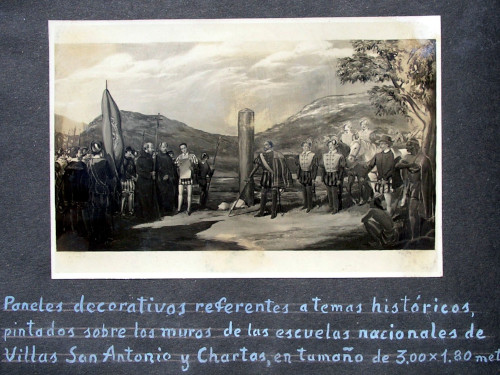 Paneles decorativos referentes a temas históricos,
pintados sobre los muros de las escuelas nacionales de
Villas San Antonio y Chartas, en tamaño de 3,00 x 1.80 met